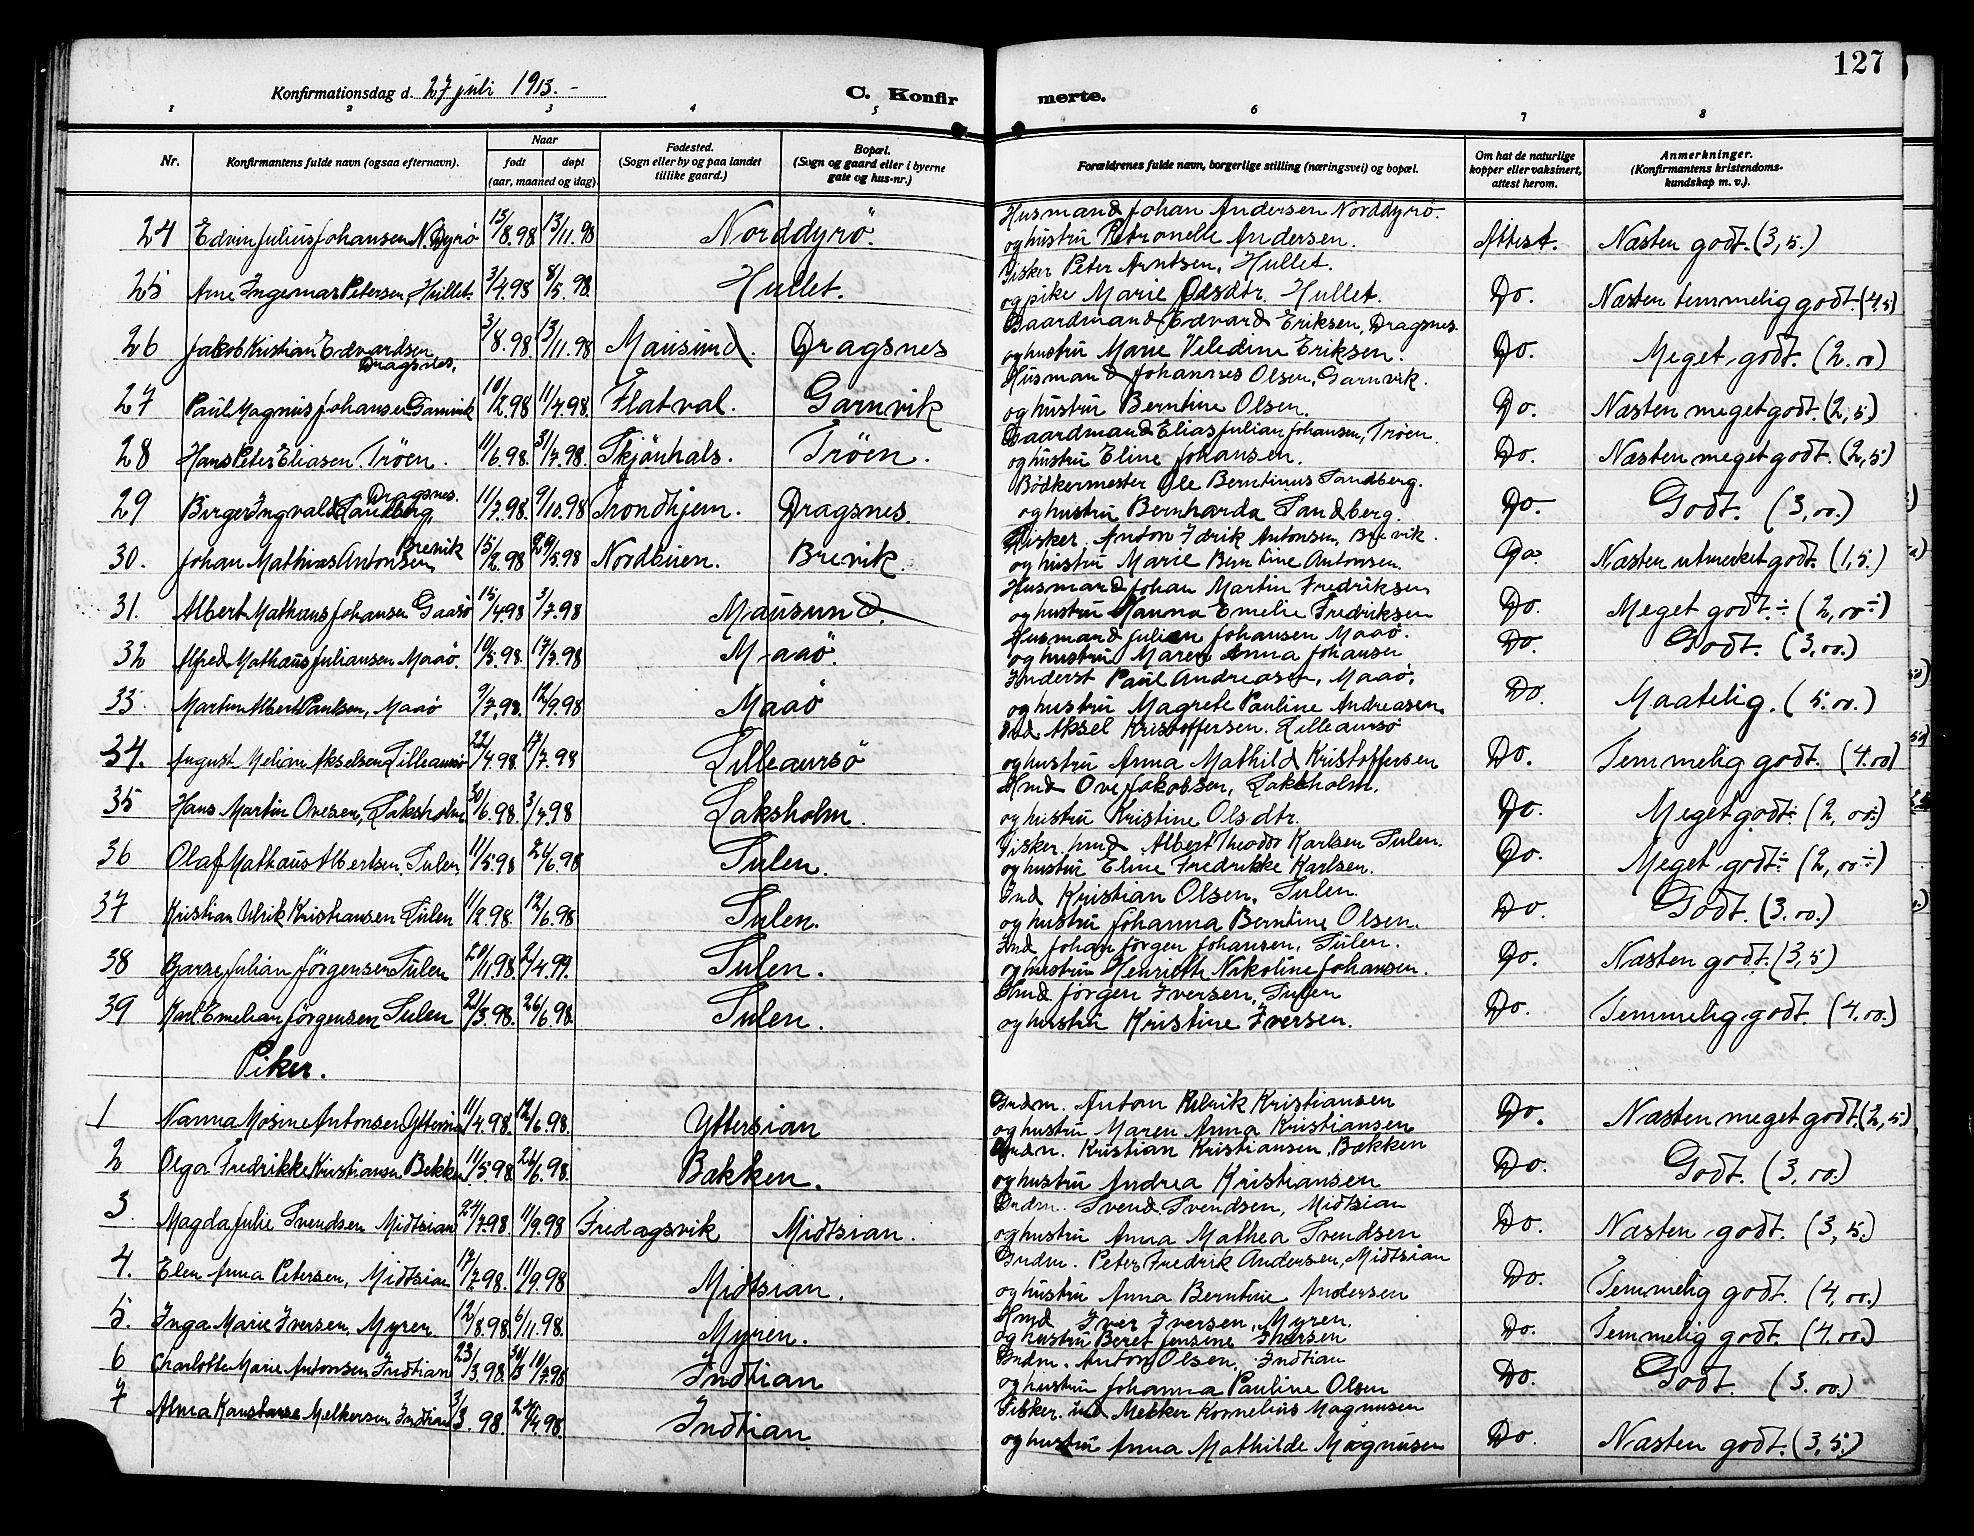 127
Konfirmationsdag d. 27 juli 1913.-
C. Konfirmerte.
1 2 3 4 5 6 7 8
Nr.
Konfirmantens fulde navn (ogsaa efternavn).
Naar
født
døpt
(aar, maaned og dag).
Fødested.
(Sogn eller by og paa landet
tillike gaard.)
Bopæl.
(Sogn og gaard eller i byerne
gate og hus-nr.)
Forældrenes fulde navn, borgerlige stilling (næringsvei) og bopæl.
Om hat de naturlige
kopper eller vaksinert,
attest herom.
Anmerkninger.
(Konfirmantens kristendoms-
kundskap m. v.).
24 Edvin Julius Johansen N. Dyrö 13/8.98 13/11.98 Norddyrö. Husmand Johan Andersen Norddyrö. Attest. Næsten godt. (3,5.)
og hustru Petronelle Andersen.
25 Arne Ingemar Petersen, Hullet. 3/4.98 8/5.98. Hullet. Fisker Peter Arntsen, Hullet. Do. Næsten temmelig godt. (4,5)
og pike Marie Olsdtr. Hullet.
26 Jakob Kristian Edvardsen 3/8.98. 13/11.98 Mausund. Dragsnes Gaardmand Edvard Eriksen, Dragsnes Do. Meget godt. (2.00)
Dragsnes. og hustru Marie Veledine Eriksen.
27 Paul Magnus Johansen Garnvik 10/2.98 11/4.98. Flatval. Garnvik Husmand Johannes Olsen, Garnvik. Do. Næsten meget godt. (2,5)
og hustru Berntine Olsen.
28 Hans Peter Eliasen. Tröen. 11/6.98. 31/7.98. Skjönhals. Tröen. Gaardmand Elias Julian Johansen, Tröen. Do. Næsten meget godt. (2,5)
og hustru Eline Johansen.
29 Birger Ingvald Sandberg, Dragsnes. 11/7.98. 9/10.98 Trondhjem. Dragsnes. Bödkermester Ole Berntinus Sandberg. Do. Godt. (3,00.)
og hustru Bernharda Sandberg.
30. Johan Mathias Antonsen Brevik 15/2.98 29/5.98 Nordbuen. Brevik. Fisker. Anton Idrik Antonsen, Brevik. Do. Næsten utmerket godt. (1,5.)
og hustru Marie Berntine Antonsen.
31. Albert Mathæus Johansen Gaasö 15/4.98 3/7.98 Mausund. Husmand Johan Martin Fredriksen Do. Meget godt ÷ (2,00 ÷)
og hustru Nanna Emelie Fredriksen
32 Alfred Mathæus Juliansen Maaö. 10/5.98. 17/7.98 Maaö. Husmand Julian Johansen Maaö. Do. Godt. (3,00.)
og hustru Maren Anna Johansen
33. Martin Albert Paulsen, Maaö 9/7.98. 12/9.98 Maaö Inderst Paul Andreasen, Maaö. Do. Maatelig. (5.00.)
og hustru Magrete Pauline Andreasen.
34. August Melian Akselsen Lilleaursö 22/4.98. 17/7.98 Lilleaursö Ind Aksel Kristoffersen. Lilleaursö Do. Temmelig godt. (4.00)
og hustru Anna Mathild Kristoffersen
35 Hans Martin Ovesen, Laksholm 30/6.98. 3/7.98 Laksholm. Hmd Ove Jakobsen, Laksholm. Do. Meget godt ÷ (2,00 ÷)
og hustru Kristine Olsdtr.
36 Olaf Mathæus Albertsen. Sulen 11/5.98 26/6.98 Sulen. Fisker. hmd Albert Theodor Karlsen Sulen. Do. Meget godt ÷ (2,00 ÷)
og hustru Eline Fredrikke Karlsen.
37 Kristian Ulrik Kristiansen Sulen 11/2.98. 12/6.98 Sulen. Ind Kristian Olsen, Sulen. Do. Godt. (3.00.)
og hustru Johanna Berntine Olsen.
38 Julian Jörgensen Sulen 20/11.98. 2/4.99. Sulen. Ind Johan Jörgen Johansen, Sulen. Do. Næsten godt. (3,5)
og hustru Henriette Nikoline Johansen.
39 Karl Emelian Jörgensen Sulen 21/3.98. 26/6.98. Sulen. Hmd Jörgen Iversen, Sulen Do. Temmelig godt. (4.00.)
og hustru Kristine Iversen.
Piker.
1 Nanna Mosine Antonsen Yttersian 11/4.98. 12/6.98. Yttersian Grdm. Anton Ulrik Kristiansen Do. Næsten meget godt. (2,5)
og hustru Maren Anna Kristiansen
2 Olga Fredrikke Kristiansen Bekken 11/5.98 26/6.98. Bakken. Grdm. Kristian Kristiansen, Bakken Do. Godt. (3,00.)
og hustru Andrea Kristiansen
3. Magda Julie Svendsen Midtsian 27/7.98. 11/9.98 Fredagsvik Midtsian. Grdm. Svend Svendsen, Midtsian Do. Næsten godt. (3,5.)
og hustru Anna Mathea Svendsen
4. Elen Anna Petersen, Midtsian 17/7.98. 11/9.98 Midtsian. Grdm. Peter Fredrik Andersen, Midtsian Do. Temmelig godt. (4,00.)
og hustru Anna Berntine Andersen
5. Inga Marie Iversen, Myren 12/8.98. 6/11.98. Myren. Hmd Iver Iversen, Myren. Do. Temmelig godt. (4.00.)
og hustru Beret Jensine Iversen
6 Charlotte Marie Antonsen Indtian 23/3.98. 10/7.98 Indtian Grdm. Anton Olsen, Indtian Do. Godt. (3.00.)
og hustru Johanna Pauline Olsen
7 Alma Konstanse Melkersen Indtian 3/3.98. 24/4.98. Indtian. Fisker. ind Melker Kornelius Magnusen Do. Næsten godt. (3,5.)
og hustru Anna Mathilde Magnusen